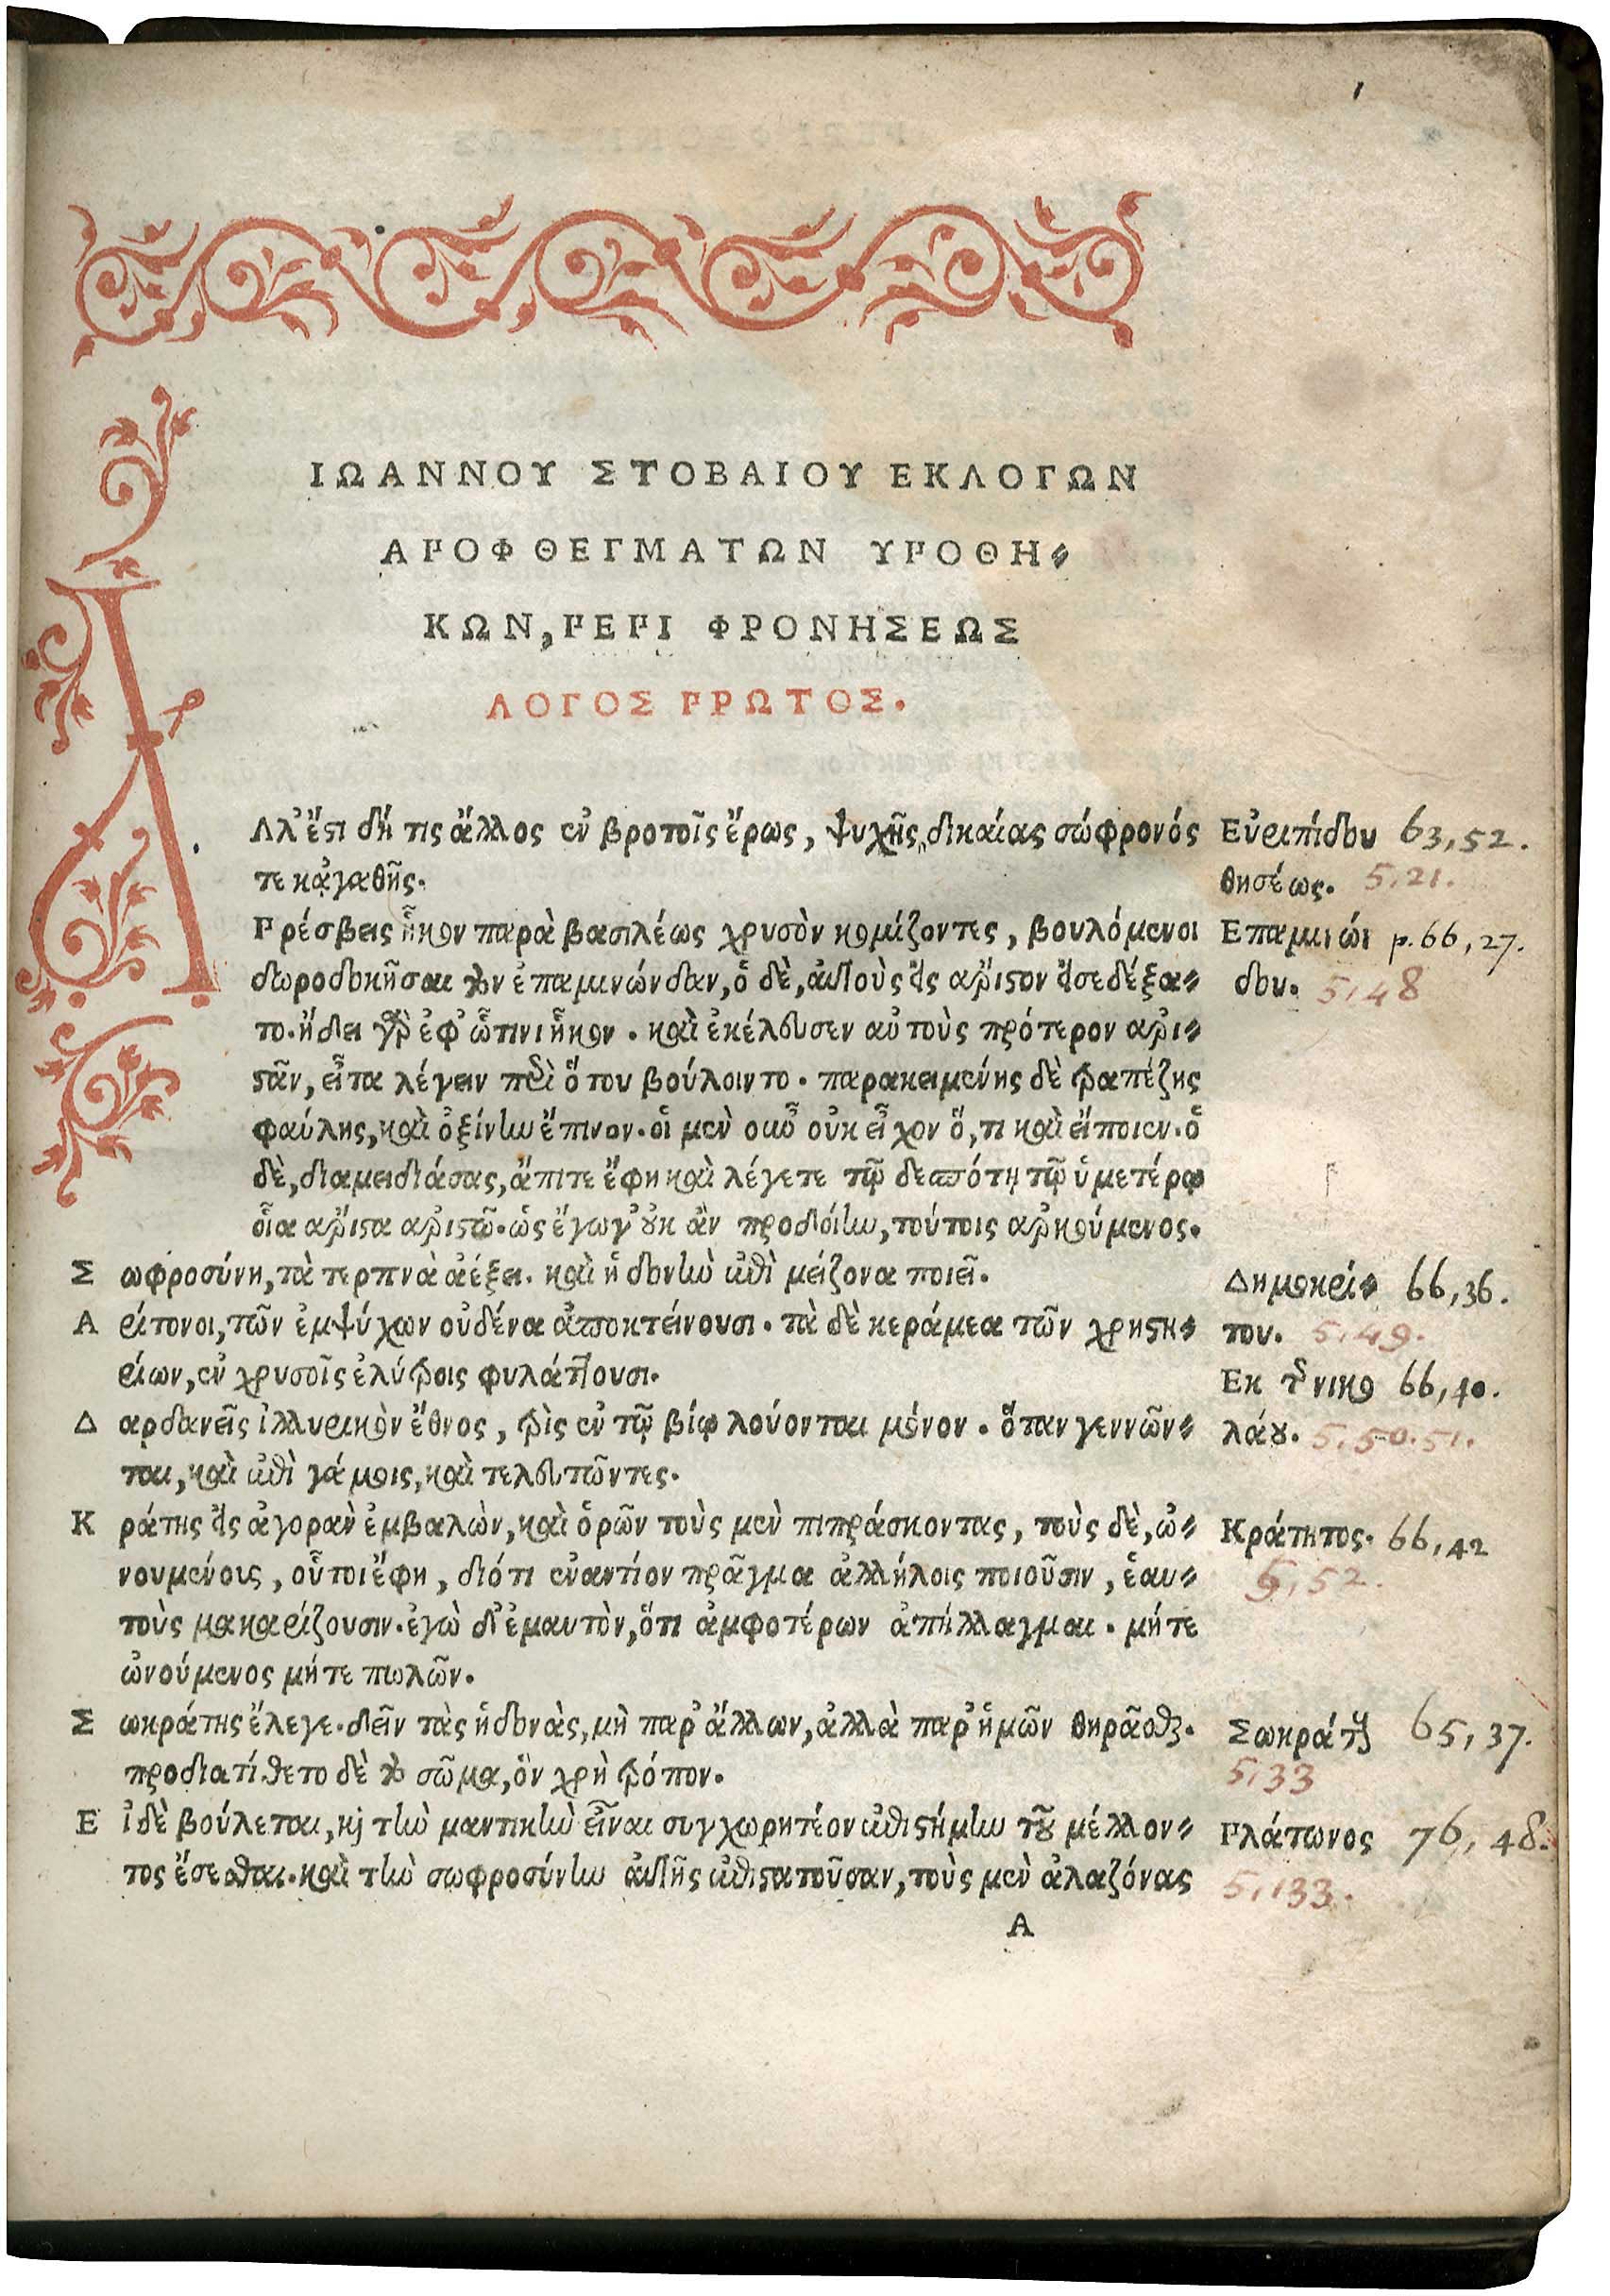 1
ΙΩΑΝΝΟΥ ΣΤΟΒΑΙΟΥ ΕΚΛΟΓΩΝ
ΑΠΟΦΘΕΓΜΑΤΩΝ ΥΠΟΘΗ-
ΚΩΝ, ΠΕΡΙ ΦΡΟΝΗΣΕΩΣ
ΛΟΓΟΣ ΠΡΩΤΟΣ.
Αλλ' ἔστι δή τις ἄλλος ἐν βροτοῖς ἔρως, ψυχῆς, δικαίας σώφρονός Εὐριπίδου 63,52.
τε κἀγαθῆς. θησέως. 5.21.
Πρέσβεις ἧκον παρὰ βασιλέως χρυσὸν κομίζοντες, βουλόμενοι Επαμινών p.66,27.
δωροδοκῆσαι τὸν ἐπαμινώνδαν, ὁ δὲ, αὐτοὺς εἰς ἄριστον εἰσεδέξα- δου. 5,48
το. ᾔδει γὰρ ἐφ' ᾧτινι ἧκον. καὶ ἐκέλευσεν αὐτοὺς πρότερον ἀρι-
στᾶν, εἶτα λέγειν περὶ ὅτου βούλοιντο. παρακειμένης δὲ τραπέζης
φαύλης, καὶ ὀξίνην ἔπινον. οἱ μὲν οὖν οὐκ εἶχον ὅ,τι καὶ εἴποιεν. ὁ
δὲ, διαμειδιάσας, ἄπιτε ἔφη καὶ λέγετε τῷ δεσπότῃ τῷ ὑμετέρῳ
οἷα ἄριστα ἀριστῶ. ὡς ἔγωγ' οὐκ ἂν προδοίην, τούτοις ἀρκούμενος.
Σ ωφροσύνη, τὰ τερπνὰ ἀέξει. καὶ ἡδονὴν ἐπὶ μείζονα ποιεῖ. Δημοκρί- 66,36.
Α ρίτονοι, τῶν ἐμψύχων οὐδένα ἀποκτείνουσι. τὰ δὲ κεράμεα τῶν χρηστη- του. 5.49.
ρίων, ἐν χρυσοῖς ἐλύτροις φυλάττουσι. Εκ τῶν νικο 66,40.
Δ αρδανεῖς ἰλλυρικὸν ἔθνος, τρὶς ἐν τῷ βίῳ λούονται μόνον. ὅταν γεννῶν- λάου. 5.50.51.
ται, καὶ ἐπὶ γάμοις, καὶ τελευτῶντες.
Κ ράτης εἰς ἀγορὰν ἐμβαλὼν, καὶ ὁρῶν τοὺς μὲν πιπράσκοντας, τοὺς δὲ, ὠ- Κράτητος. 66,42
νουμένους, οὗτοι ἔφη, διότι ἐναντίον πρᾶγμα ἀλλήλοις ποιοῦσιν, ἑαυ- 5,52.
τοὺς μακαρίζουσιν. ἐγὼ δ' ἐμαυτὸν, ὅτι ἀμφοτέρων ἀπήλλαγμαι. μήτε
ὠνούμενος μήτε πωλῶν.
Σ ωκράτης ἔλεγε. δεῖν τὰς ἡδονὰς, μὴ παρ' ἄλλων, ἀλλὰ παρ' ἡμῶν θηρᾶσθαι. Σωκράτους 65,37.
προδιατίθετο δὲ τὸ σῶμα, ὃν χρὴ τρόπον. 5,33
Ε ἰ δὲ βούλεται, καὶ τὴν μαντικὴν εἶναι συγχωρητέον ἐπιστήμην τοῦ μέλλον- Πλάτωνος 76,48.
τος ἔσεσθαι. καὶ τὴν σωφροσύνην αὐτῆς ἐπιστατοῦσαν, τοὺς μὲν ἀλαζόνας 5,133.
Α